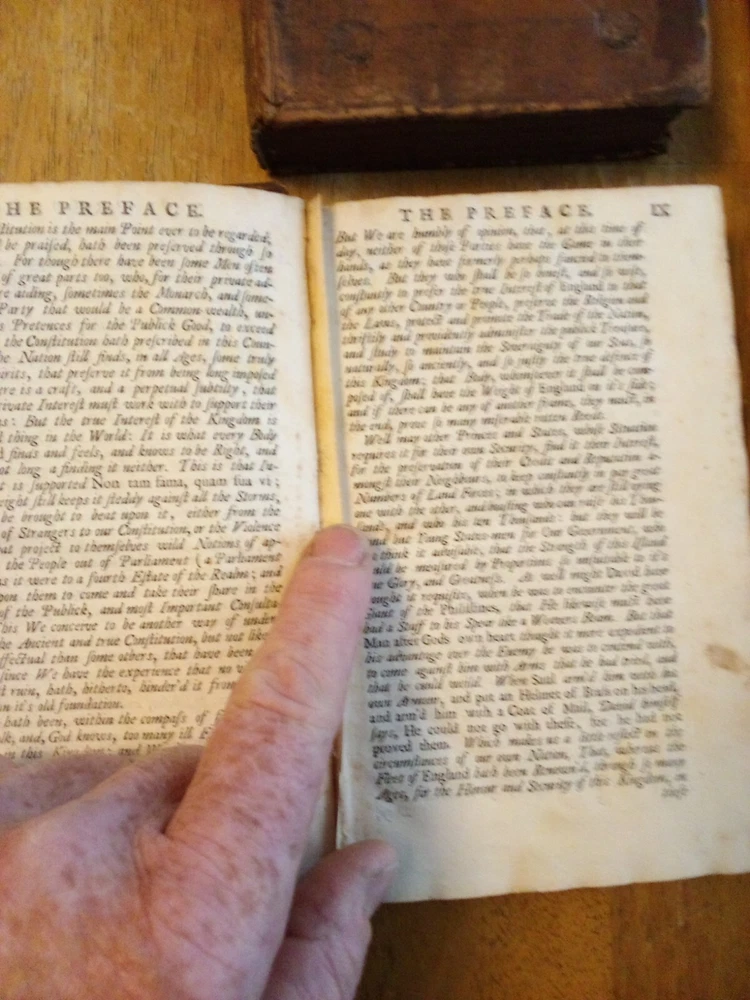 HE PREFACE.
ſtitution is the main Point ever to be regarded,
be praiſed, hath been preſerved through ſo
For though there have been ſome Men often
of great parts too, who, for their private ad-
re aiding, ſometimes the Monarch, and ſome-
Party that would be a Common-wealth, un-
s Pretences for the Publick Good, to exceed
the Conſtitution hath preſcribed in this Coun-
he Nation ſtill finds, in all Ages, ſome truly
irits, that preſerve it from being long impoſed
ere is a craft, and a perpetual ſubtilty, that
rivate Intereſt muſt work with to ſupport their
s: But the true Intereſt of the Kingdom is
thing in the World: It is what every Body
finds and feels, and knows to be Right, and
ot long a finding it neither. This is that In-
t is ſupported Non tam fama, quam ſua vi;
eight ſtill keeps it ſteddy againſt all the Storms,
be brought to beat upon it, either from the
of Strangers to our Conſtitution, or the Violence
at project to themſelves wild Notions of ap-
the People out of Parliament (a Parliament
s it were to a fourth Eſtate of the Realm; and
pon them to come and take their ſhare in the
of the Publick, and moſt Important Conſulta
his We conceive to be another way of under
he Ancient and true Conſtitution, but not like
ffectual than ſome others, that have been
ſince We have the experience that no v
t ruin, hath, hitherto, hinder'd it from
n it's old foundation.
hath been, within the compaſs of
lk, and, God knows, too many ill E
n this Kingdom; and W
THE PREFACE. IX
But We are humbly of opinion, that, at this time of
day, neither of thoſe Parties have the Game in their
hands, as they have formerly perhaps fancied to them-
ſelves. But they who ſhall be ſo honeſt, and ſo wiſe,
conſtantly to prefer the true Intereſt of England to that
of any other Country or People, preſerve the Religion and
the Laws, protect and promote the Trade of the Nation,
thriftily and providently adminiſter the publick Treaſure,
and ſtudy to maintain the Sovereignty of our Seas, ſo
naturally, ſo anciently, and ſo juſtly the true defence of
this Kingdom; that Body, whomſoever it ſhall be com-
poſed of, ſhall have the Weight of England on it's ſide;
and if there can be any of another frame, they muſt, in
the end, prove ſo many miſerable rotten Reeds.
Well may other Princes and States, whoſe Situation
requires it for their own Security, find it their Intereſt,
for the preſervation of their Credit and Reputation a-
mongſt their Neighbours, to keep conſtantly in pay great
Numbers of Land Forces; in which they are ſtill vying
one with the other, and boaſting who can raiſe his Thou-
ſands, and who his ten Thouſands: but they will be
und but Young States-men for Our Government, who
think it adviſable, that the Strength of this Iſland
uld be meaſured by Proportions ſo unſuitable to it's
ue Glory, and Greatneſs. As well might David have
ought it requiſite, when he was to encounter the great
Giant of the Philiſtines, that He likewiſe muſt have
had a Staff to his Spear like a Weavers Beam. But that
Man after Gods own heart thought it more expedient to
his advantage over the Enemy he was to contend with,
to come againſt him with Arms that he had tried, and
that he could wield. When Saul arm'd him with his
own Armour, and put an Helmet of Braſs on his head,
and arm'd him with a Coat of Mail, David himſelf
ſays, He could not go with theſe, for he had not
proved them. Which makes us a little reflect on the
circumſtances of our own Nation, That, whereas the
Fleet of England hath been Renown'd, through ſo many
Ages, for the Honour and Security of this Kingdom, in
theſe